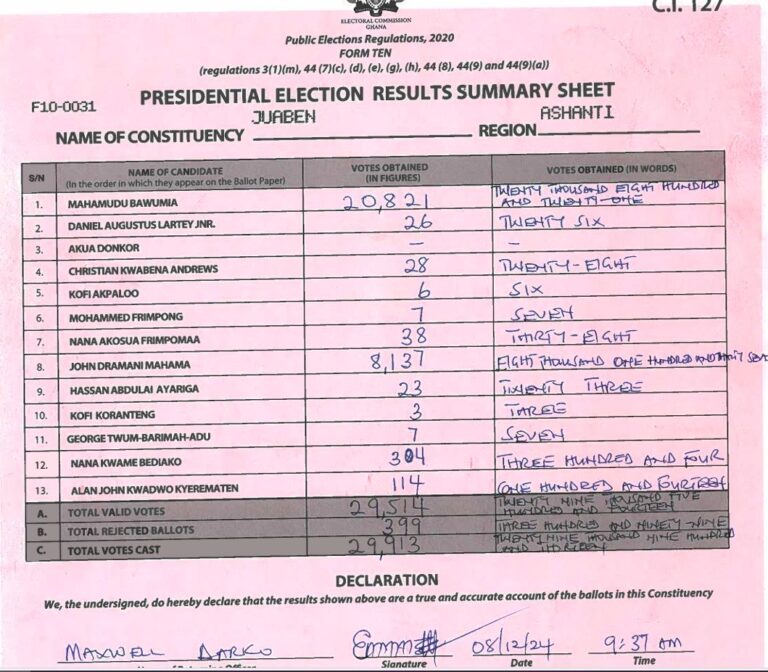 C.I. 127
ELECTORAL COMMISSION
GHANA
Public Elections Regulations, 2020
FORM TEN
(regulations 3(1)(m), 44 (7)(c), (d), (e), (g), (h), 44 (8), 44(9) and 44(9)(a))
PRESIDENTIAL ELECTION RESULTS SUMMARY SHEET
F10-0031
NAME OF CONSTITUENCY JUABEN REGION ASHANTI
S/N NAME OF CANDIDATE (In the order in which they appear on the Ballot Paper) VOTES OBTAINED (IN FIGURES) VOTES OBTAINED (IN WORDS)
1. MAHAMUDU BAWUMIA 20,821 TWENTY THOUSAND EIGHT HUNDRED AND TWENTY-ONE
2. DANIEL AUGUSTUS LARTEY JNR. 26 TWENTY SIX
3. AKUA DONKOR – –
4. CHRISTIAN KWABENA ANDREWS 28 TWENTY-EIGHT
5. KOFI AKPALOO 6 SIX
6. MOHAMMED FRIMPONG 7 SEVEN
7. NANA AKOSUA FRIMPOMAA 38 THIRTY-EIGHT
8. JOHN DRAMANI MAHAMA 8,137 EIGHT THOUSAND ONE HUNDRED AND THIRTY SEVEN
9. HASSAN ABDULAI AYARIGA 23 TWENTY THREE
10. KOFI KORANTENG 3 THREE
11. GEORGE TWUM-BARIMAH-ADU 7 SEVEN
12. NANA KWAME BEDIAKO 304 THREE HUNDRED AND FOUR
13. ALAN JOHN KWADWO KYEREMATEN 114 ONE HUNDRED AND FOURTEEN
A. TOTAL VALID VOTES 29,514 TWENTY NINE THOUSAND FIVE HUNDRED AND FOURTEEN
B. TOTAL REJECTED BALLOTS 399 THREE HUNDRED AND NINETY NINE
C. TOTAL VOTES CAST 29,913 TWENTY NINE THOUSAND NINE HUNDRED AND THIRTEEN
DECLARATION
We, the undersigned, do hereby declare that the results shown above are a true and accurate account of the ballots in this Constituency
MAXWELL DARKO 08/12/24 9:37 AM
Signature Date Time